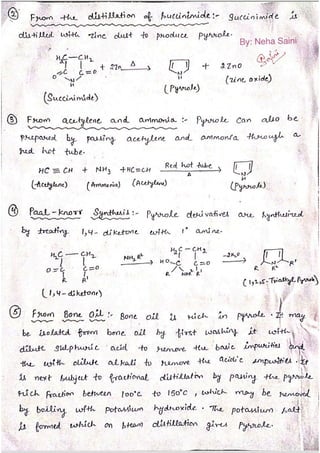 ② From the distillation of succinimide :- Succinimide is
distilled with zinc dust to produce pyrrole.
By: Neha Saini
H₂C — CH₂
+ 2Zn Δ → + 2ZnO
O=C C=O
N
H
N
H
(zinc oxide)
(Succinimide)
(Pyrrole)
③ From acetylene and ammonia :- Pyrrole can also be
prepared by passing acetylene and ammonia through a
red hot tube.
HC ≡ CH + NH₃ + HC≡CH Red hot tube → Δ
N
H
(Acetylene) (Ammonia) (Acetylene) (Pyrrole)
④ Paal-knorr Synthesis :- Pyrrole derivatives are synthesized
by treating 1,4-diketone with 1° amine.
H₂C — CH₂ NH₂R² → H₂C — CH₂ -2H₂O →
O=C C=O HO C C=O
R R' R NHR² R' R N R'
R²
(1,4-diketone) (1,2,5-Trialkyl Pyrrole)
⑤ From Bone Oil :- Bone oil is rich in pyrrole. It may
be isolated from bone oil by first washing it with
dilute sulphuric acid to remove the basic impurities and
the with dilute alkali to remove the acidic impurities. It
is next subject to fractional distillation by passing the pyrrole
rich fraction between 100°C to 150°C, which may be removed
by boiling with potassium hydroxide. The potassium salt
is formed which on steam distillation gives Pyrrole.